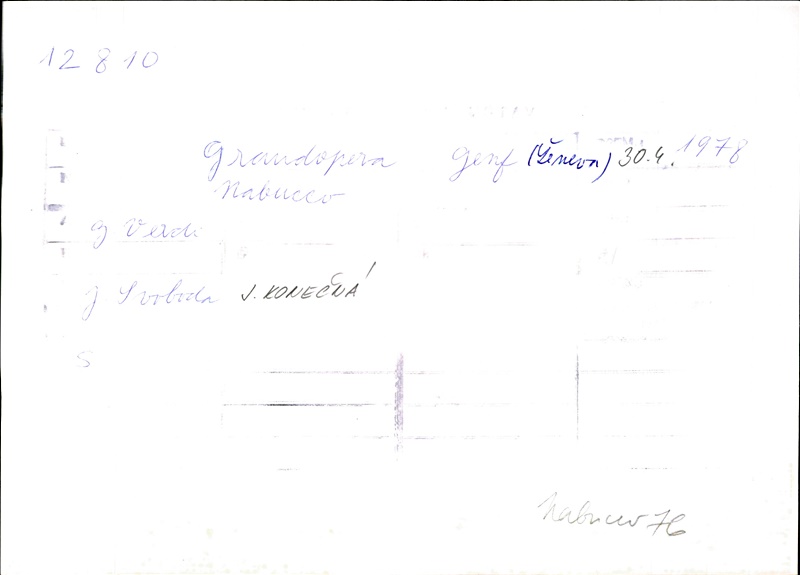 12 8 10
Grandopera Genf (Ženeva) 30.4. 1978
Nabucco
G Verdi
J Svoboda J. KONEČNÁ
S
Nabucco 76